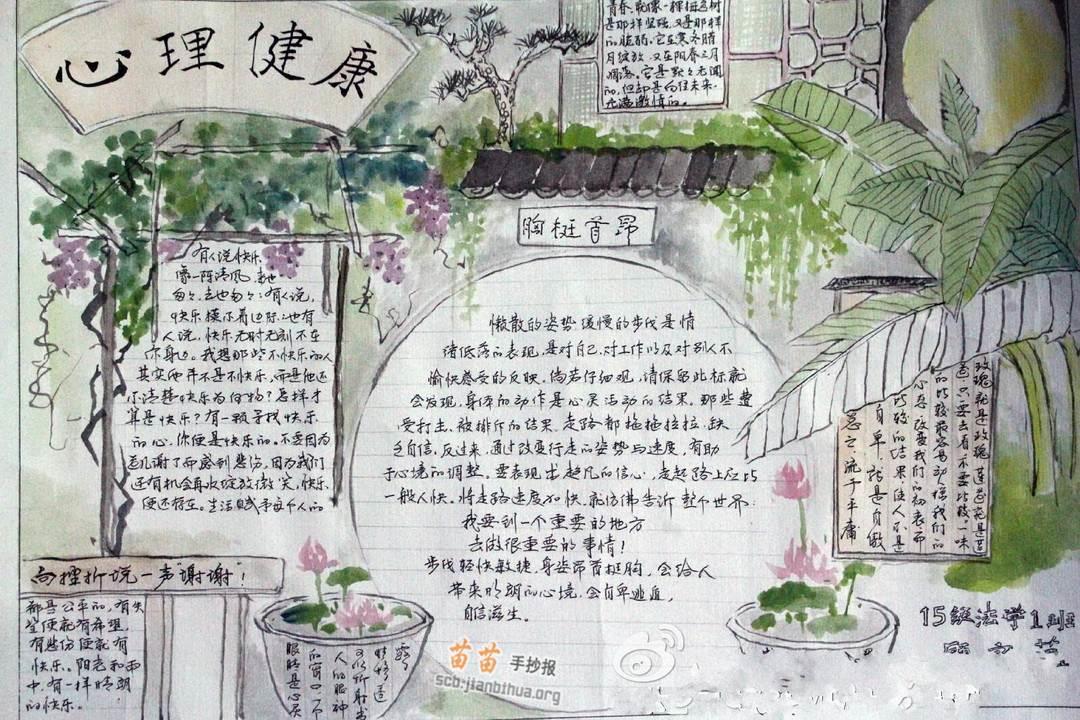 心理健康
青春,就像一棵梅花树
是那样坚强,又是那样
的脆弱。它在寒冬腊
月绽放,又在阳春三月
凋落。它是默默无闻
的,但却是向往未来,
充满激情的。
胸挺首昂
有人说快乐
像一阵清风,来也
匆匆,去也匆匆;有人说,
快乐摸不着边际;也有
人说,快乐无时无刻不在
你身边。我想那些不快乐的人
其实他并不是不快乐,而是他还
不清楚快乐为何物?怎样才
算是快乐?有一颗寻找快乐
的心,你便是快乐的。不要因为
花儿谢了而感到悲伤,因为我们
还有机会再次绽放微笑,快乐
便还存在。生活赋予每个人的
向挫折说一声“谢谢”!
都是公平的,有失
望便就有希望,
有悲伤便就有
快乐。阳光和雨
中,有一样晴朗
的快乐。
懒散的姿势、缓慢的步伐是情
绪低落的表现,是对自己、对工作以及对别人不
愉快感受的反映。倘若仔细观
会发现,身体的动作是心灵活动的结果。那些遭
受打击、被排斥的结果,走路都拖拖拉拉,缺
乏自信。反过来,通过改变行走的姿势与速度,有助
于心境的调整。要表现出超凡的信心,走起路上应比
一般人快。将走路速度加快,就仿佛告诉整个世界:
我要到一个重要的地方
去做很重要的事情!
步伐轻快敏捷,身姿昂首挺胸,会给人
带来明朗的心境,会自卑逃遁,
自信滋生。
玫瑰就是玫瑰,莲花就是莲
花,只要去看,不要比较。一味
的比较最容易动人摇我们的
心态,改变我们的初衷。而
比较的结果,使人不是
自卑,就是自傲
总之流于平庸
眼睛是心灵
的窗口,而
人的眼神
可以折射出
性格
15级法学1班
苗苗手抄报
scb.jianbihua.org